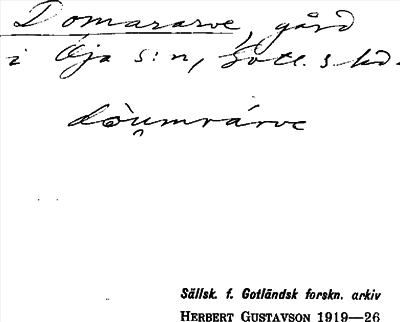 Domararve, gård
i Öja s:n, Gotl. s hd.
dòu̯mrárve
Sällsk. f. Gotländsk forskn. arkiv
HERBERT GUSTAVSON 1919—26